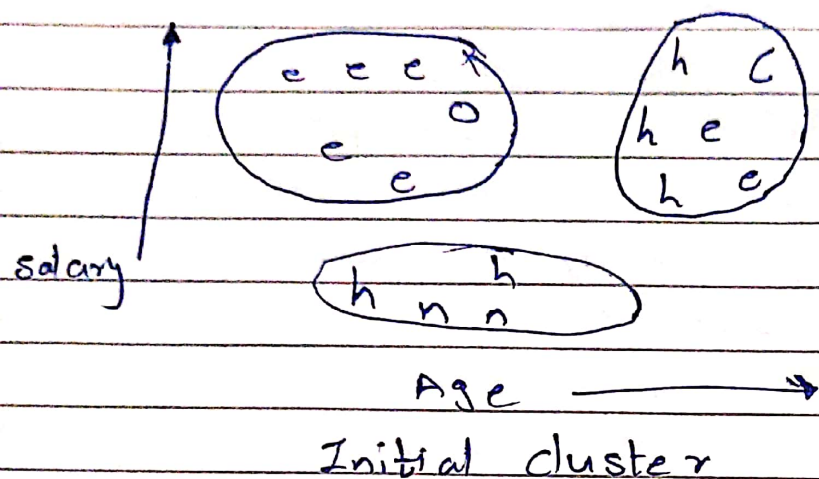 e e e
h C
o
h e
e
e
h e
salary
h h
n n
Age
Initial cluster